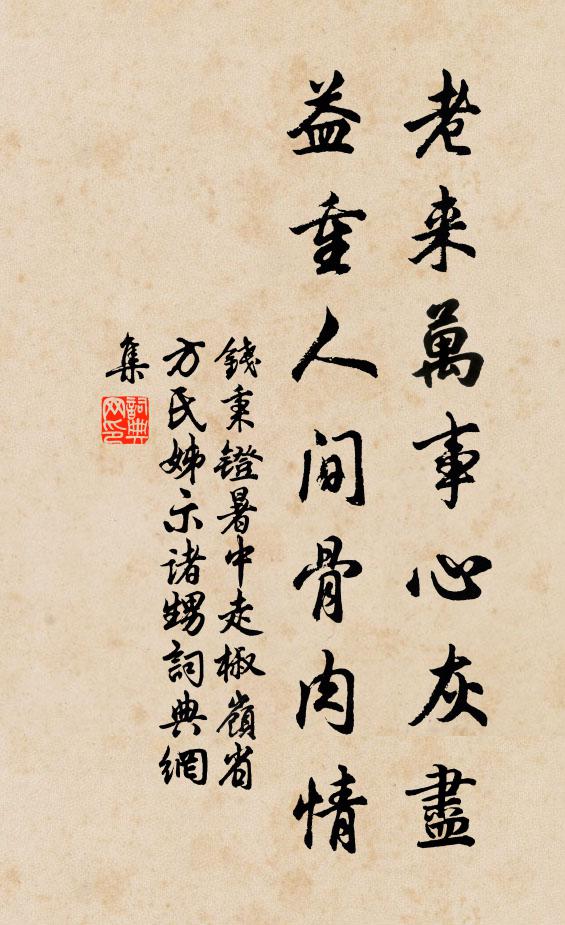 老来萬事心灰盡
益重人间骨肉情
錢秉鐙暑中走椒嶺省
方氏姊示诸甥詞典網
集
詞典
网印